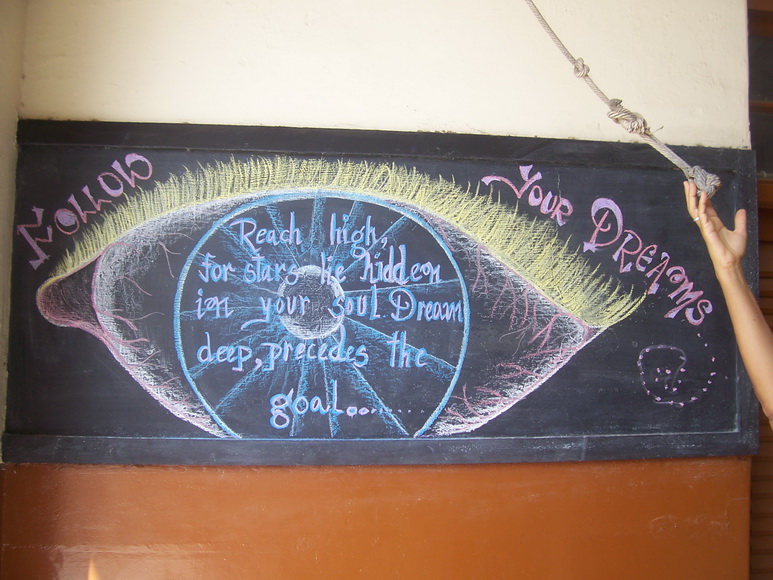 Follow Your Dreams....
Reach high,
for stars lie hidden
in your soul. Dream
deep, precedes the
goal..........